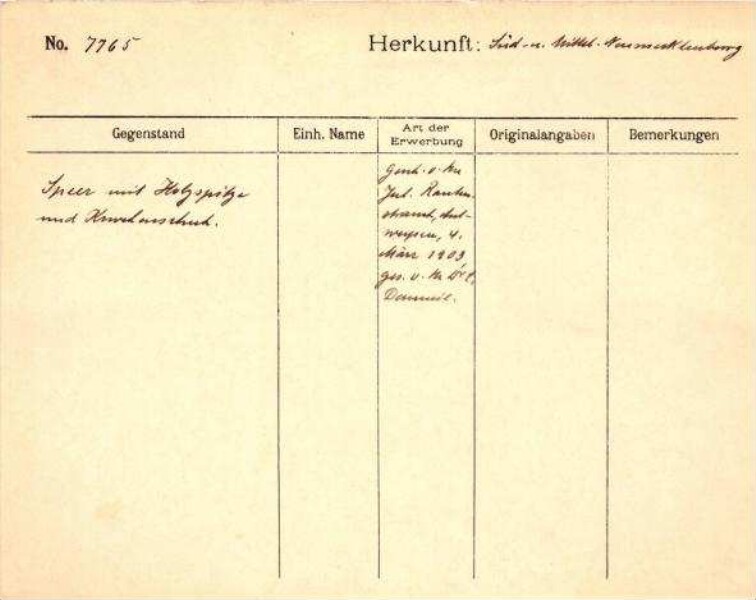 No. 7765
Herkunft: Süd- u. Mittel-Neumecklenburg
Gegenstand
Einh. Name
Art der
Erwerbung
Originalangaben
Bemerkungen
Speer mit Holzspitze
und Knochenschuh.
Gesch. v. Hn
Jul. Rauten-
strauch, Ant-
werpen, 4.
März 1909
ges. v. Hn
Dameil.